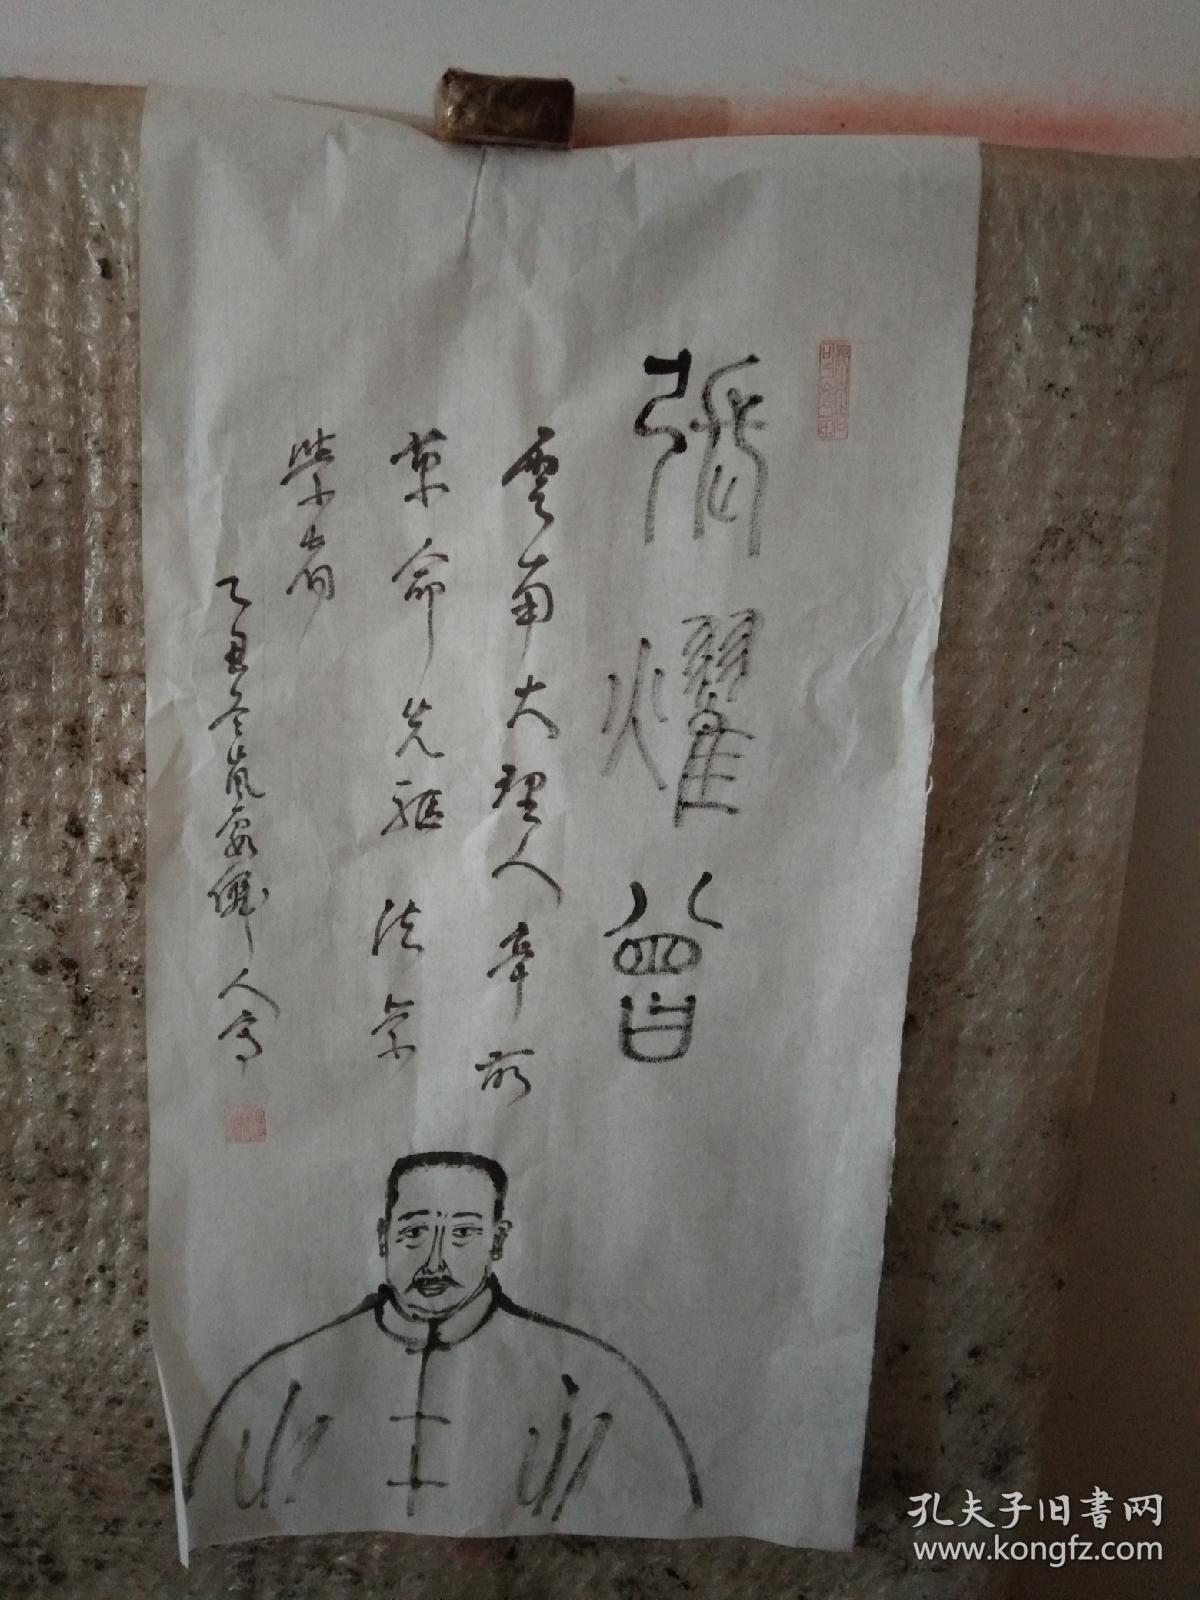 張耀曾
雲南大理人辛亥
革命先驱法学
學者
乙丑冬嵐
人寫
孔夫子旧書网
www.kongfz.com